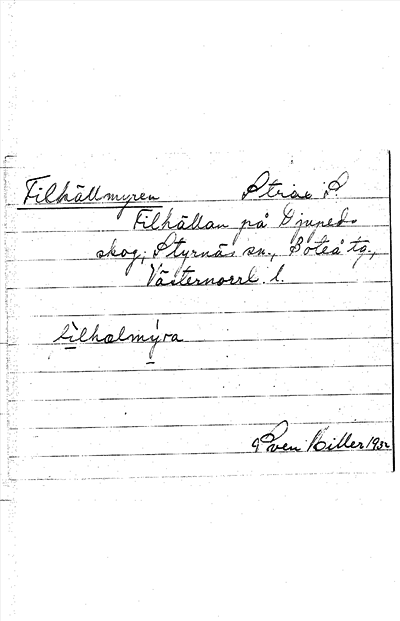 Filkällmyren Strax S.
Filkällan på Djupeds
skog, Styrnäs sn., Boteå tg.,
Västernorrl. l.
filhælmýra
Sven Hiller 1932